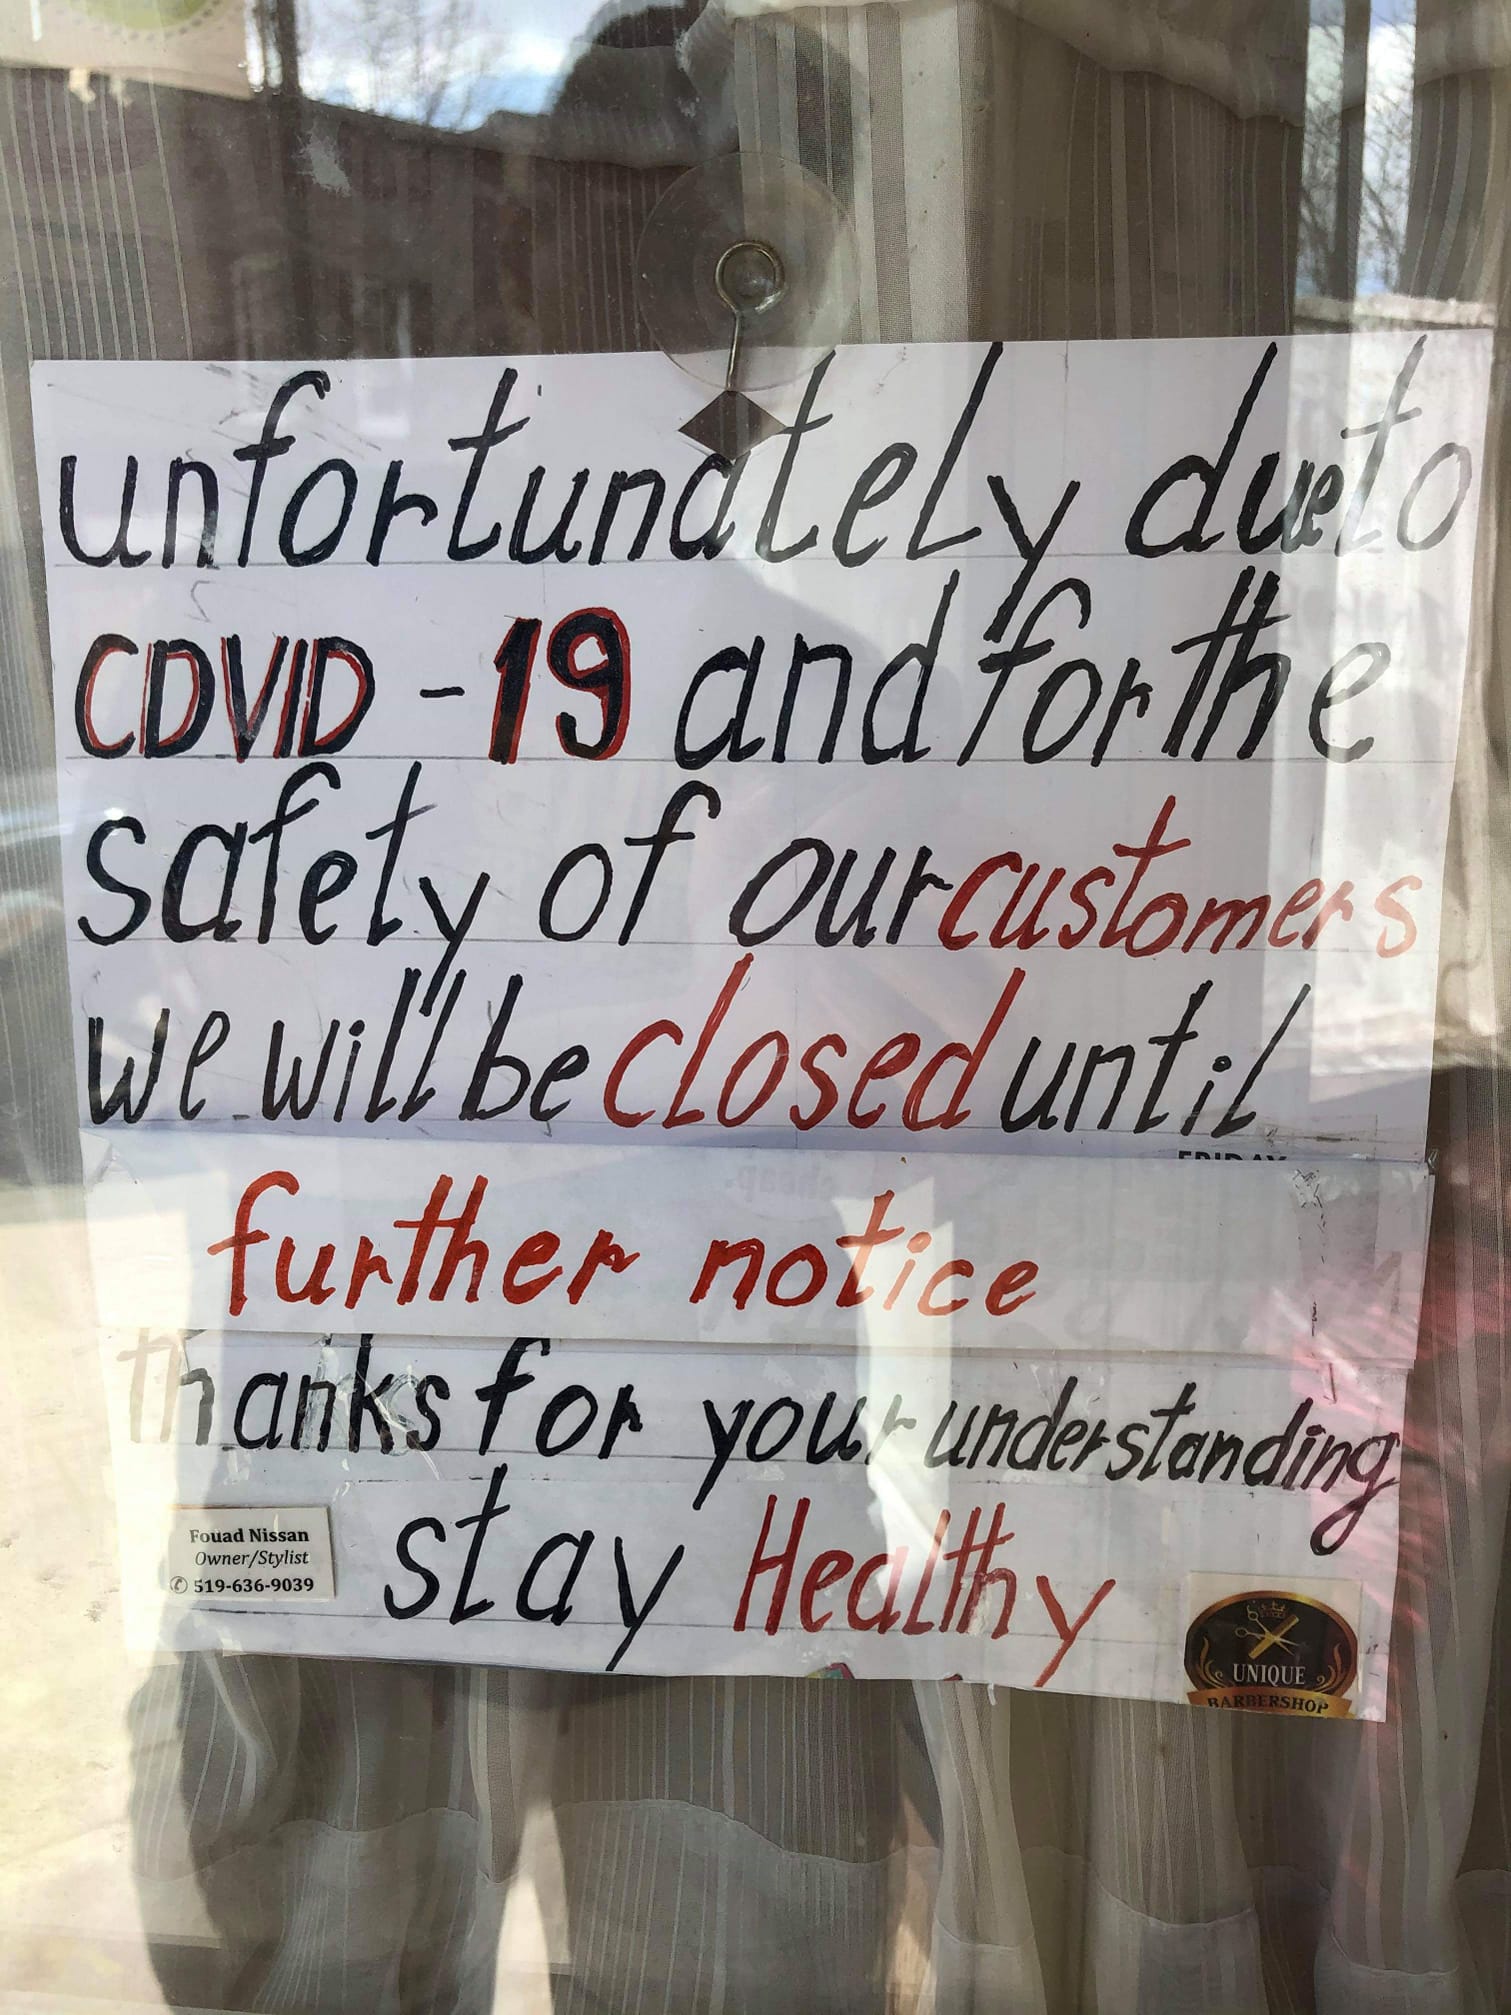 unfortunately due to
COVID -19 and for the
safety of our customers
we will be closed until
further notice
thanks for your understanding
stay Healthy
Fouad Nissan
Owner/Stylist
✆ 519-636-9039
UNIQUE
BARBERSHOP